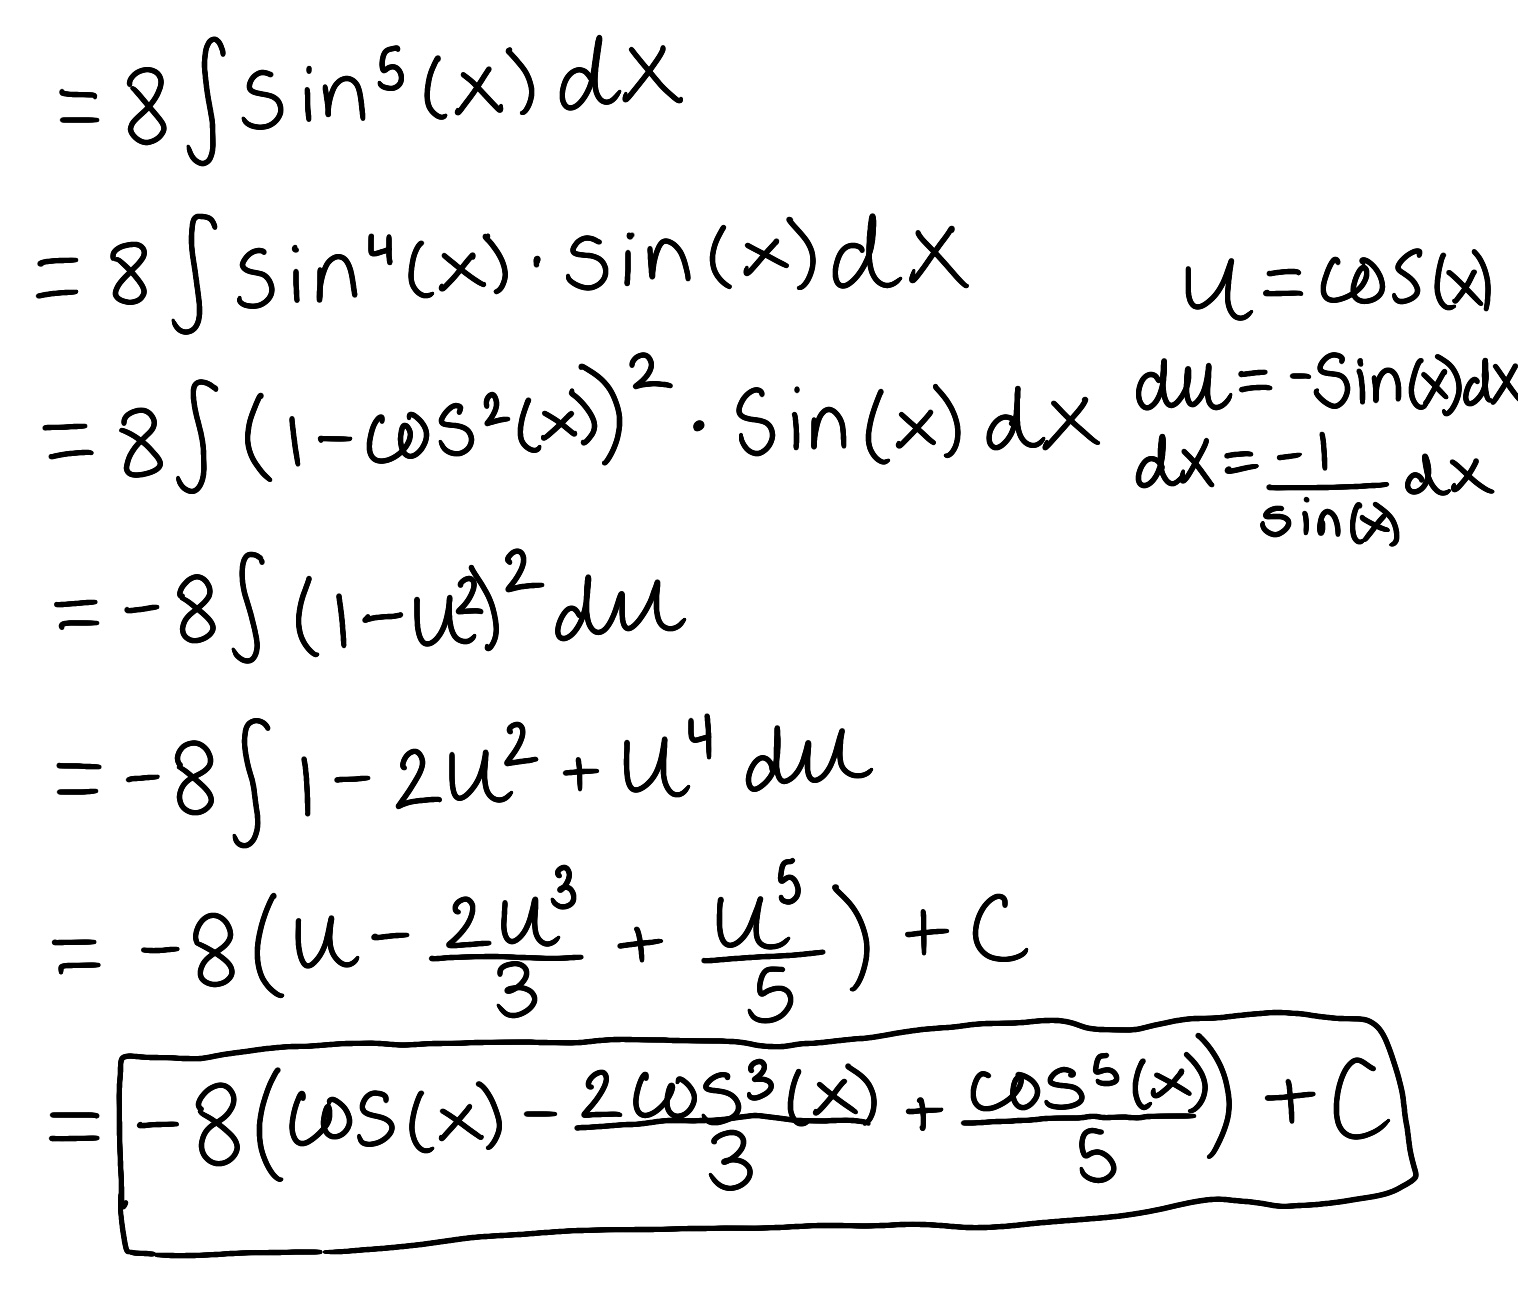 = 8∫sin⁵(x) dx
= 8∫sin⁴(x) · sin(x) dx
u = cos(x)
= 8∫(1 - cos²(x))² · sin(x) dx
du = -sin(x)dx
dx = -1/sin(x) dx
= -8∫(1 - u²)² du
= -8∫1 - 2u² + u⁴ du
= -8(u - 2u³/3 + u⁵/5) + C
= -8(cos(x) - 2cos³(x)/3 + cos⁵(x)/5) + C